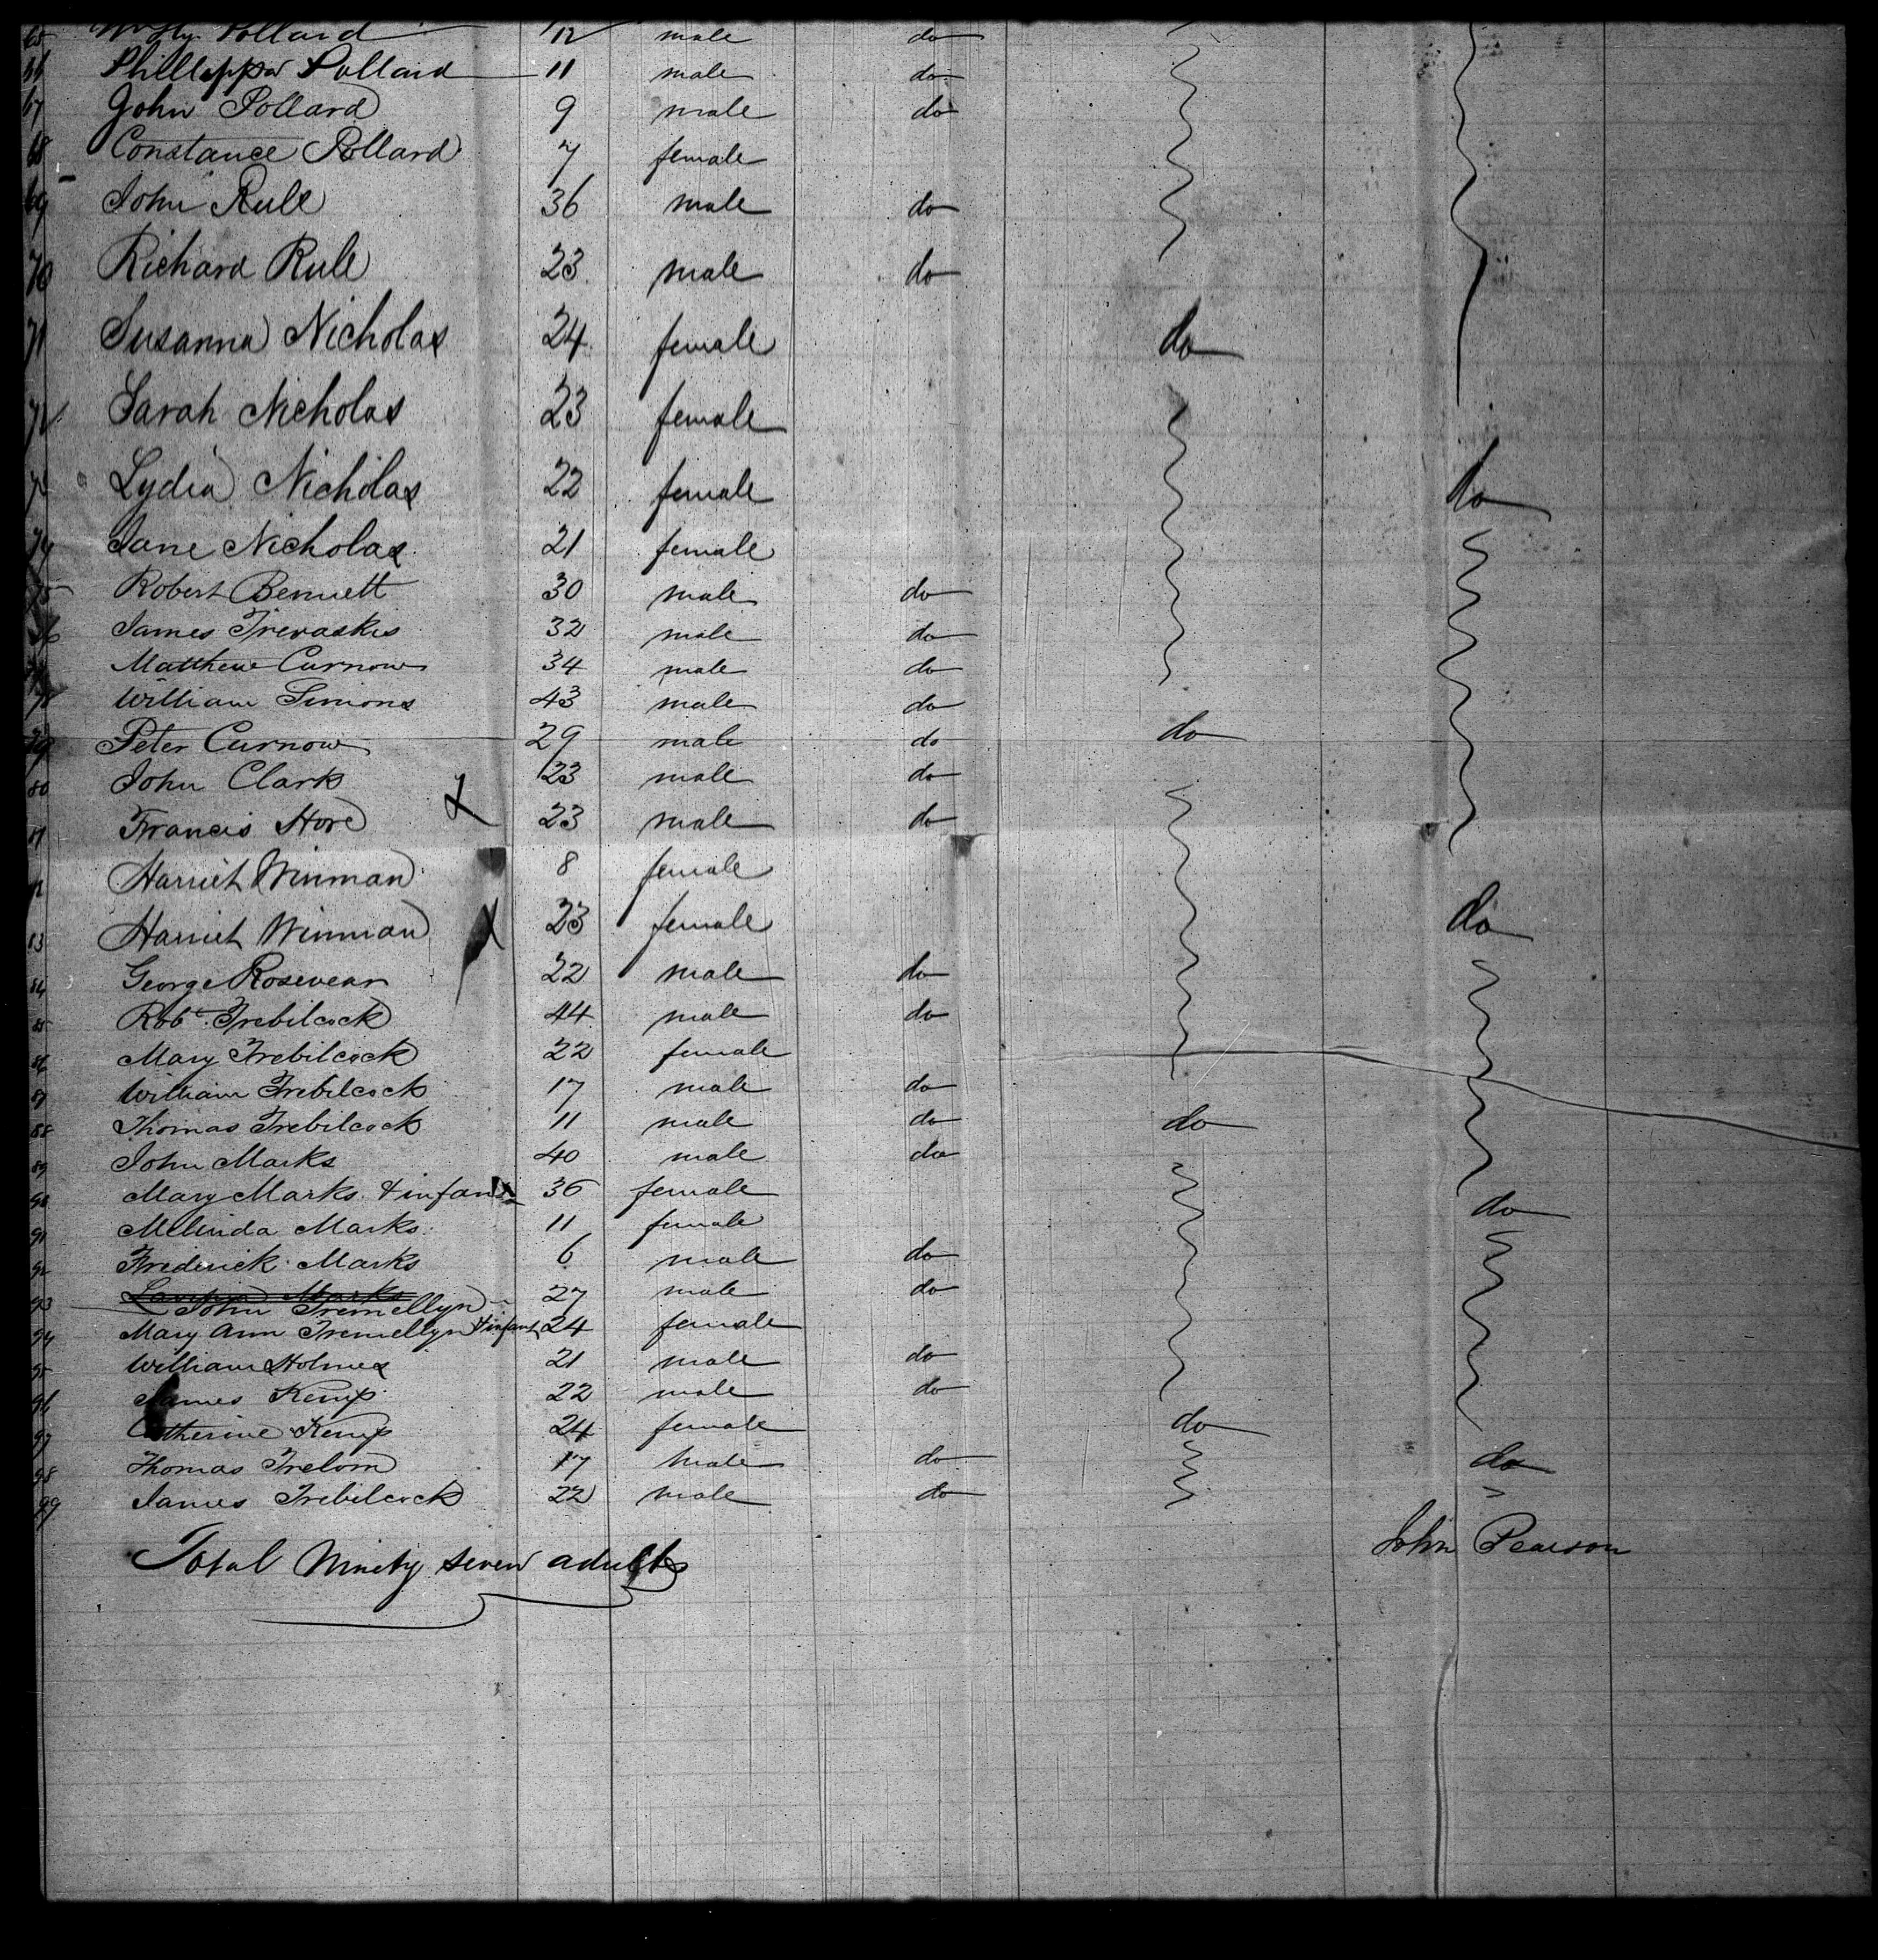 65 Pollard 12 male do
66 Phillippa Pollard 11 male do
67 John Pollard 9 male do
68 Constance Pollard 7 female
69 John Rule 36 male do
70 Richard Rule 23 male do
71 Susanna Nicholas 24 female do
72 Sarah Nicholas 23 female
73 Lydia Nicholas 22 female do
74 Jane Nicholas 21 female
75 Robert Bennett 30 male do
76 James Trevaskis 32 male do
77 Matthew Curnow 34 male do
78 William Simons 43 male do
79 Peter Curnow 29 male do do
80 John Clark 23 male do
81 Francis Hore X 23 male do
82 Harriet Winman 8 female
83 Harriet Winman X 23 female do
84 George Rosevear 22 male do
85 Robt. Trebilcock 44 male do
86 Mary Trebilcock 22 female
87 William Trebilcock 17 male do
88 Thomas Trebilcock 11 male do do
89 John Marks 40 male do
90 Mary Marks & infant 36 female do
91 Melinda Marks 11 female
92 Frederick Marks 6 male do
Marks
93 John Tremellyn 27 male do
94 Mary Ann Tremellyn & infant 24 female
95 William Holmes 21 male do
96 James Kemp 22 male do
97 Catherine Kemp 24 female do
98 Thomas 17 male do do
99 James Trebilcock 22 male do
John Pearson
Total Ninety seven adults